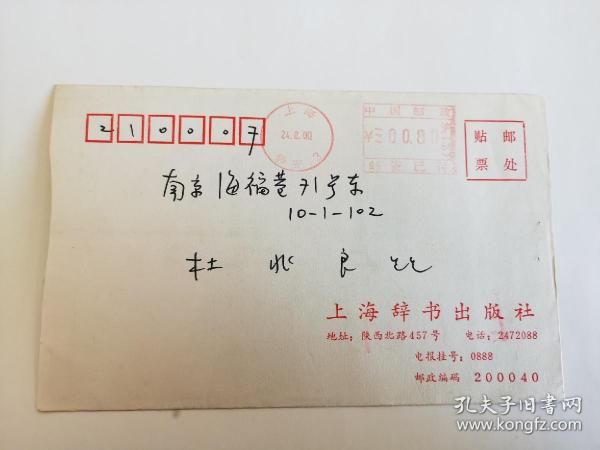 210007
24.8.00
中国邮政
¥ 00.80
贴邮
票处
南京海福巷71号东
10-1-102
杜 兆 良
上海辞书出版社
地址：陕西北路457号 电话：2472088
电报挂号：0888
邮政编码 200040
孔夫子旧书网
www.kongfz.com